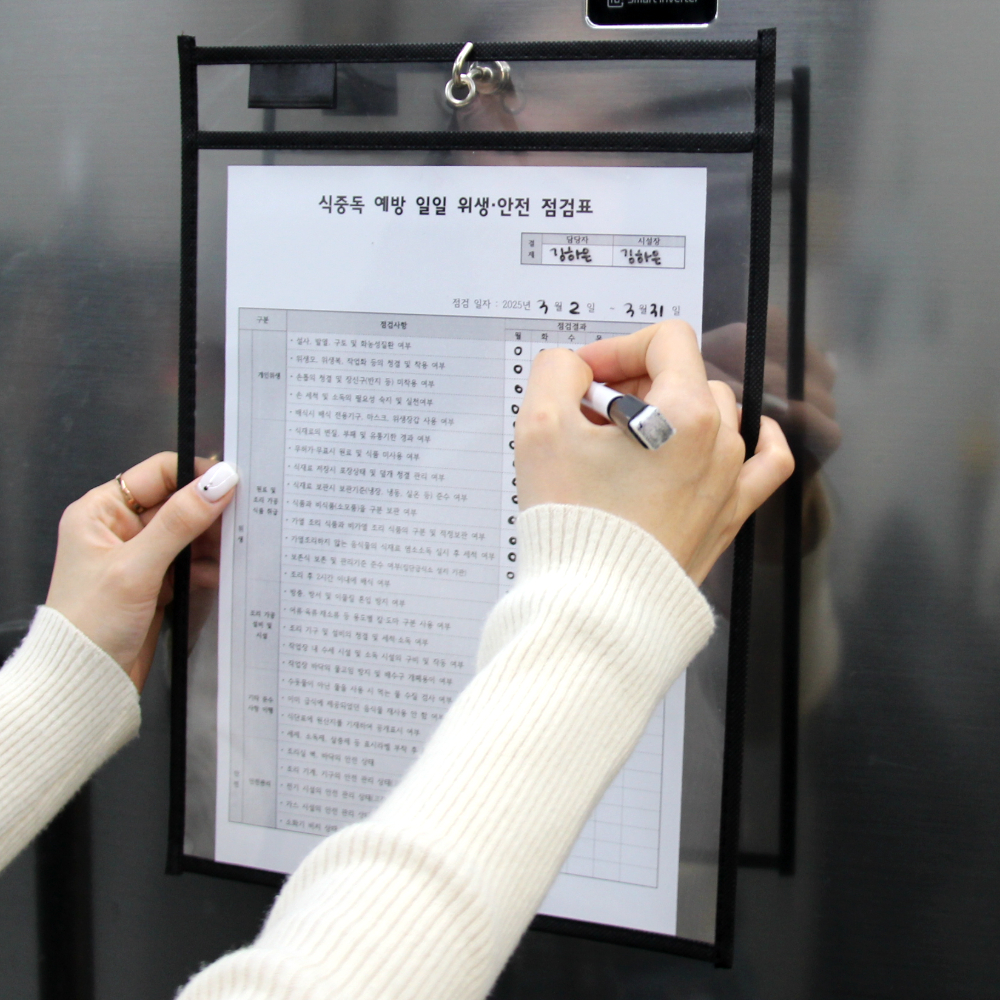 Smart Inverter
식중독 예방 일일 위생·안전 점검표
결재 담당자 시설장
김하은 김하은
점검 일자 : 2025년 3 월 2 일 - 3 월 31 일
구분 점검사항 점검결과
월 화 수
· 설사, 발열, 구토 및 화농성질환 여부
개인위생
· 위생모, 위생복, 작업화 등의 청결 및 착용 여부
· 손톱의 청결 및 장신구(반지 등) 미착용 여부
· 손 세척 및 소독의 필요성 숙지 및 실천여부
· 배식시 배식 전용기구, 마스크, 위생장갑 사용 여부
· 식재료의 변질, 부패 및 유통기한 경과 여부
· 무허가·무표시 원료 및 식품 미사용 여부
· 식재료 저장시 포장상태 및 덮개 청결 관리 여부
원료 및
조리 가공
식품 취급
· 식재료 보관시 보관기준(냉장, 냉동, 실온 등) 준수 여부
· 식품과 비식품(소모품)을 구분 보관 여부
위생
· 가열 조리 식품과 비가열 조리 식품의 구분 및 적정보관 여부
· 가열조리하지 않는 음식물의 식재료 염소소독 실시 후 세척 여부
· 보존식 보존 및 관리기준 준수 여부(집단급식소 설치 기관)
· 조리 후 2시간 이내에 배식 여부
· 방충, 방서 및 이물질 혼입 방지 여부
조리 가공
설비 및
시설
· 어류·육류·채소류 등 용도별 칼·도마 구분 사용 여부
· 조리 기구 및 설비의 청결 및 세척·소독 여부
· 작업장 내 수세 시설 및 소독 시설의 구비 및 작동 여부
· 작업장 바닥의 물고임 방지 및 배수구 개폐용이 여부
· 수돗물이 아닌 물을 사용 시 먹는 물 수질 검사 여부
기타 준수
사항 이행
· 이미 급식에 제공되었던 음식물 재사용 안 함 여부
· 식단표에 원산지를 기재하여 공개표시 여부
· 세제, 소독제, 살충제 등 표시라벨 부착 후
· 조리실 벽, 바닥의 안전 상태
안전 안전관리
· 조리 기계, 기구의 안전 관리 상태
· 전기 시설의 안전 관리 상태
· 가스 시설의 안전 관리 상
· 소화기 비치 상태